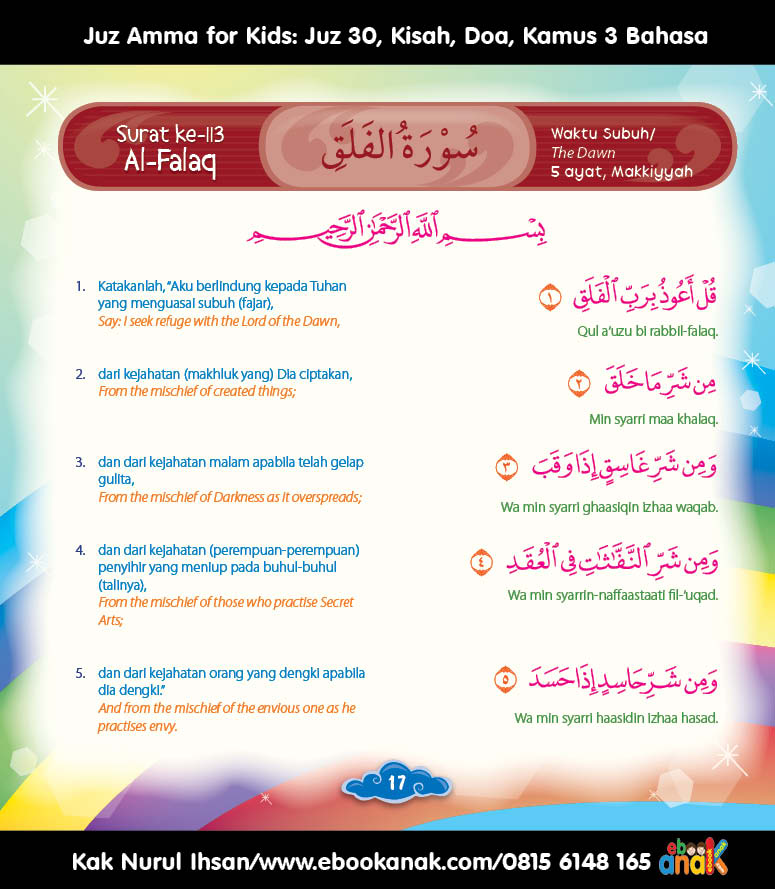 Juz Amma for Kids: Juz 30, Kisah, Doa, Kamus 3 Bahasa
Surat ke-113
Al-Falaq
سُوْرَةُ الفَلَقِ
Waktu Subuh/
The Dawn
5 ayat, Makkiyyah
بِسْمِ اللَّهِ الرَّحْمَٰنِ الرَّحِيمِ
1. Katakanlah, “Aku berlindung kepada Tuhan
yang menguasai subuh (fajar),
Say: I seek refuge with the Lord of the Dawn,
قُلْ أَعُوذُ بِرَبِّ ٱلْفَلَقِ ١
Qul a‘uzu bi rabbil-falaq.
2. dari kejahatan (makhluk yang) Dia ciptakan,
From the mischief of created things;
مِن شَرِّ مَا خَلَقَ ٢
Min syarri maa khalaq.
3. dan dari kejahatan malam apabila telah gelap
gulita,
From the mischief of Darkness as it overspreads;
وَمِن شَرِّ غَاسِقٍ إِذَا وَقَبَ ٣
Wa min syarri ghaasiqin izhaa waqab.
4. dan dari kejahatan (perempuan-perempuan)
penyihir yang meniup pada buhul-buhul
(talinya),
From the mischief of those who practise Secret
Arts;
وَمِن شَرِّ ٱلنَّفَّٰثَٰتِ فِى ٱلْعُقَدِ ٤
Wa min syarrin-naffaastaati fil-‘uqad.
5. dan dari kejahatan orang yang dengki apabila
dia dengki.”
And from the mischief of the envious one as he
practises envy.
وَمِن شَرِّ حَاسِدٍ إِذَا حَسَدَ ٥
Wa min syarri haasidin izhaa hasad.
17
Kak Nurul Ihsan/www.ebookanak.com/0815 6148 165
ebook
anak